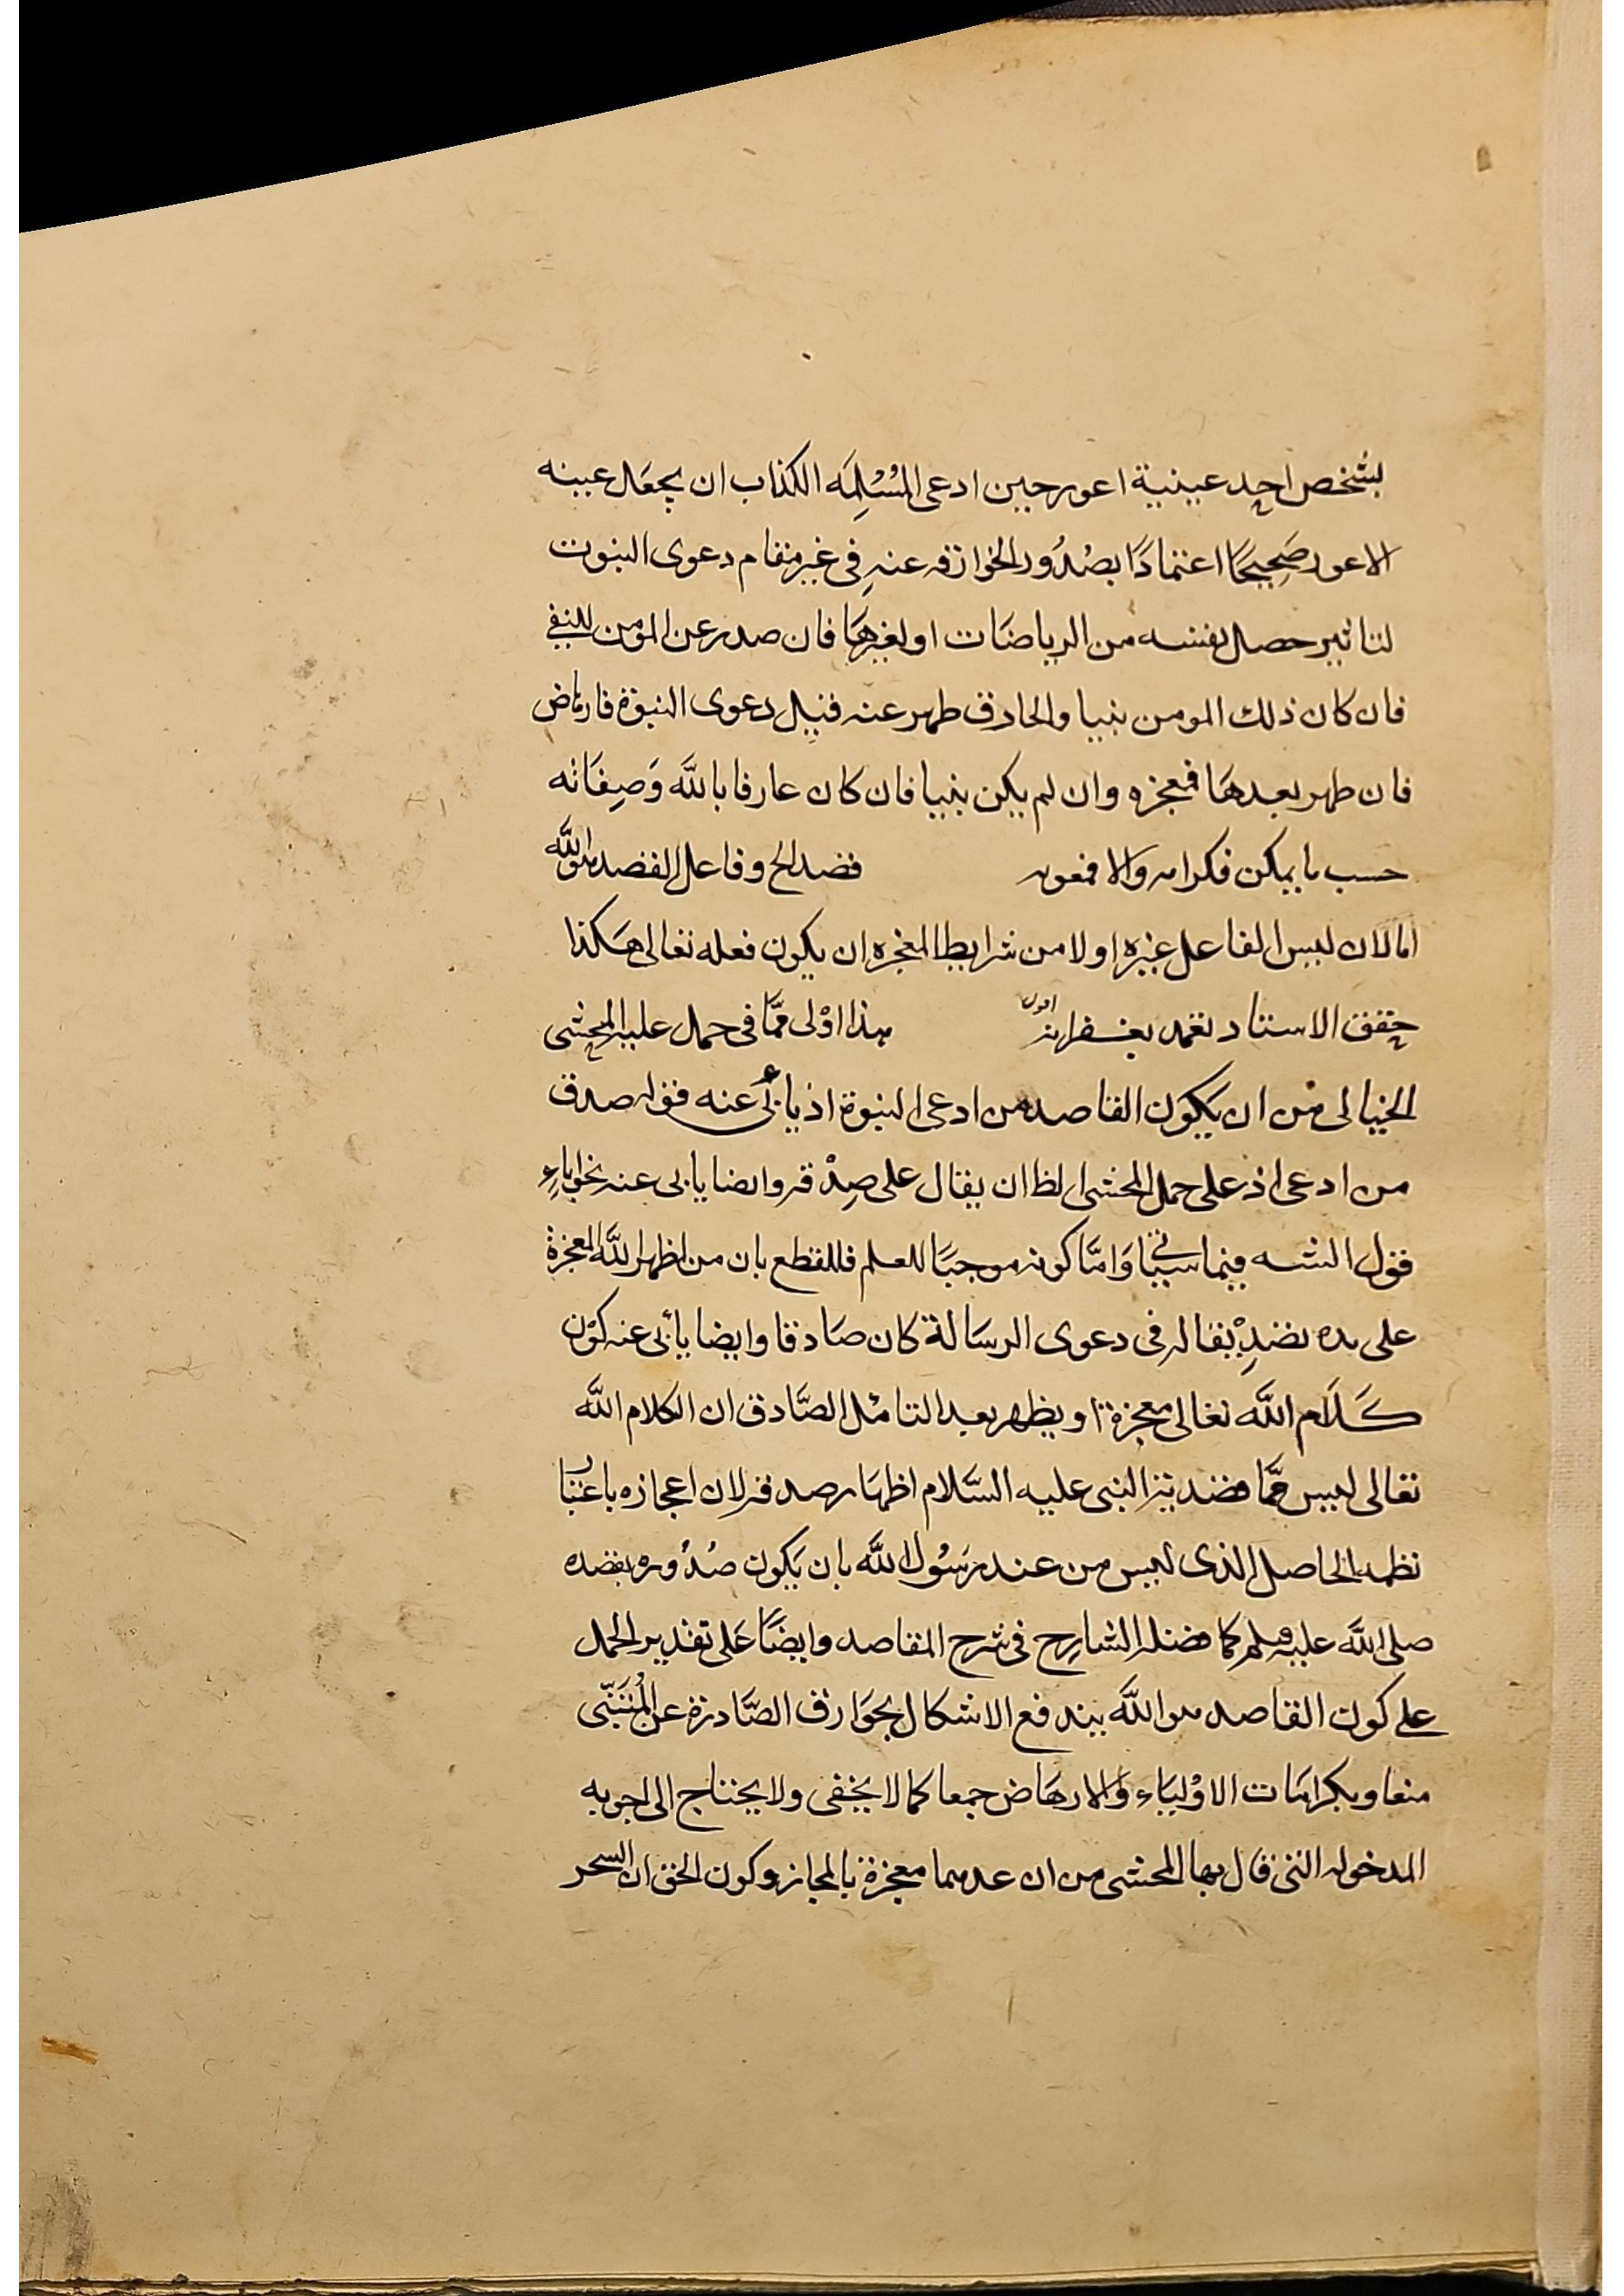 لشخص احد عينية اعور حين ادعى المُسْلِمَه الكذاب ان يجعَل عينه
الاعور صَحِيحًا اعتمادًا بصُدُور الخوارق عنهِ فى غير مقام دعوى النبوت
لتاثير حصل لفنسه من الرياضَات او لغيرهَا فان صدر عن المومن للنبى
فان كان ذلك المومن نبيا والخارق طهر عنه قبل دعوى النبوة فارهاض
فان طهر بعدهَا فمعجزه وان لم يكن نبيا فان كان عارفا باللَّه وَصِفَاته
حسب ما يمكن فكرامه والا فمعونه قصد الخ وفاعل القصد هو اللَّه
امالان ليس الفاعل غيره اولا من شرايط المعجزه ان يكون فعله تعالى هكذا
حقق الاستاد تغمد بغفرانه اقول هذا اوْلى ممَّا فى حمل عليه المحشى
الخيالى من ان يكوَن القاصد من ادعى النبوة اذ يأبى عنه قوله صدق
من ادعى اذ على حمل المحشى الظ ان يقال على صِدْقه وايضا يابى عنه نحو اباءِ
قول الشه فيما سيأتى وَامَّا كونه موجبًا للعلم فللقطع بان من اظهر اللَّه المعجزة
على يده تصدِيْقا له فى دعوى الرسَالة كان صَادقا وايضا يأبى عنه كوْن
كَلَام اللَّه تعالى معجزة او يظهر بعد التامْل الصَّادق ان الكلام اللَّه
تعالى ليس ممَّا قصد به النبى عليه السَّلام اظهَار صدقه لان اعجازه باعتبار
نظمه الحاصل الذى ليس من عند رَسُول اللَّه بان يَكون صُدُوره بقصده
صلى اللَّه عليه وسلم كما فصله الشارح فى شرح المقاصد وايضًا عَلى تقدير الحمل
على كون القاصد هو اللَّه يندفع الاشكال بخوَارق الصَّادرة عن المُتنَبّى
معا وبكرامَات الاوْليَاء والارهَاض جمعا كما لا يخفى ولا يحتاج الى اجوبه
المدخوله التى قال بها المحشى من ان عدهما معجزة بالمجاز وكون الحق ان السحر